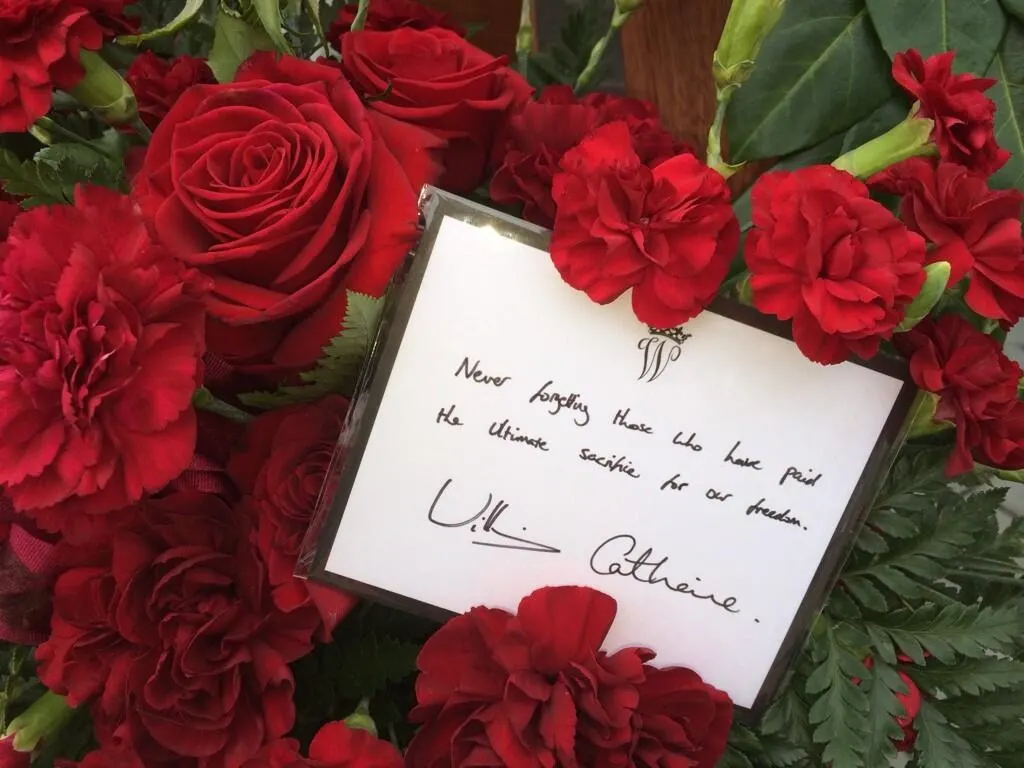 Never forgetting those who have paid
the ultimate sacrifice for our freedom.
William Catherine.